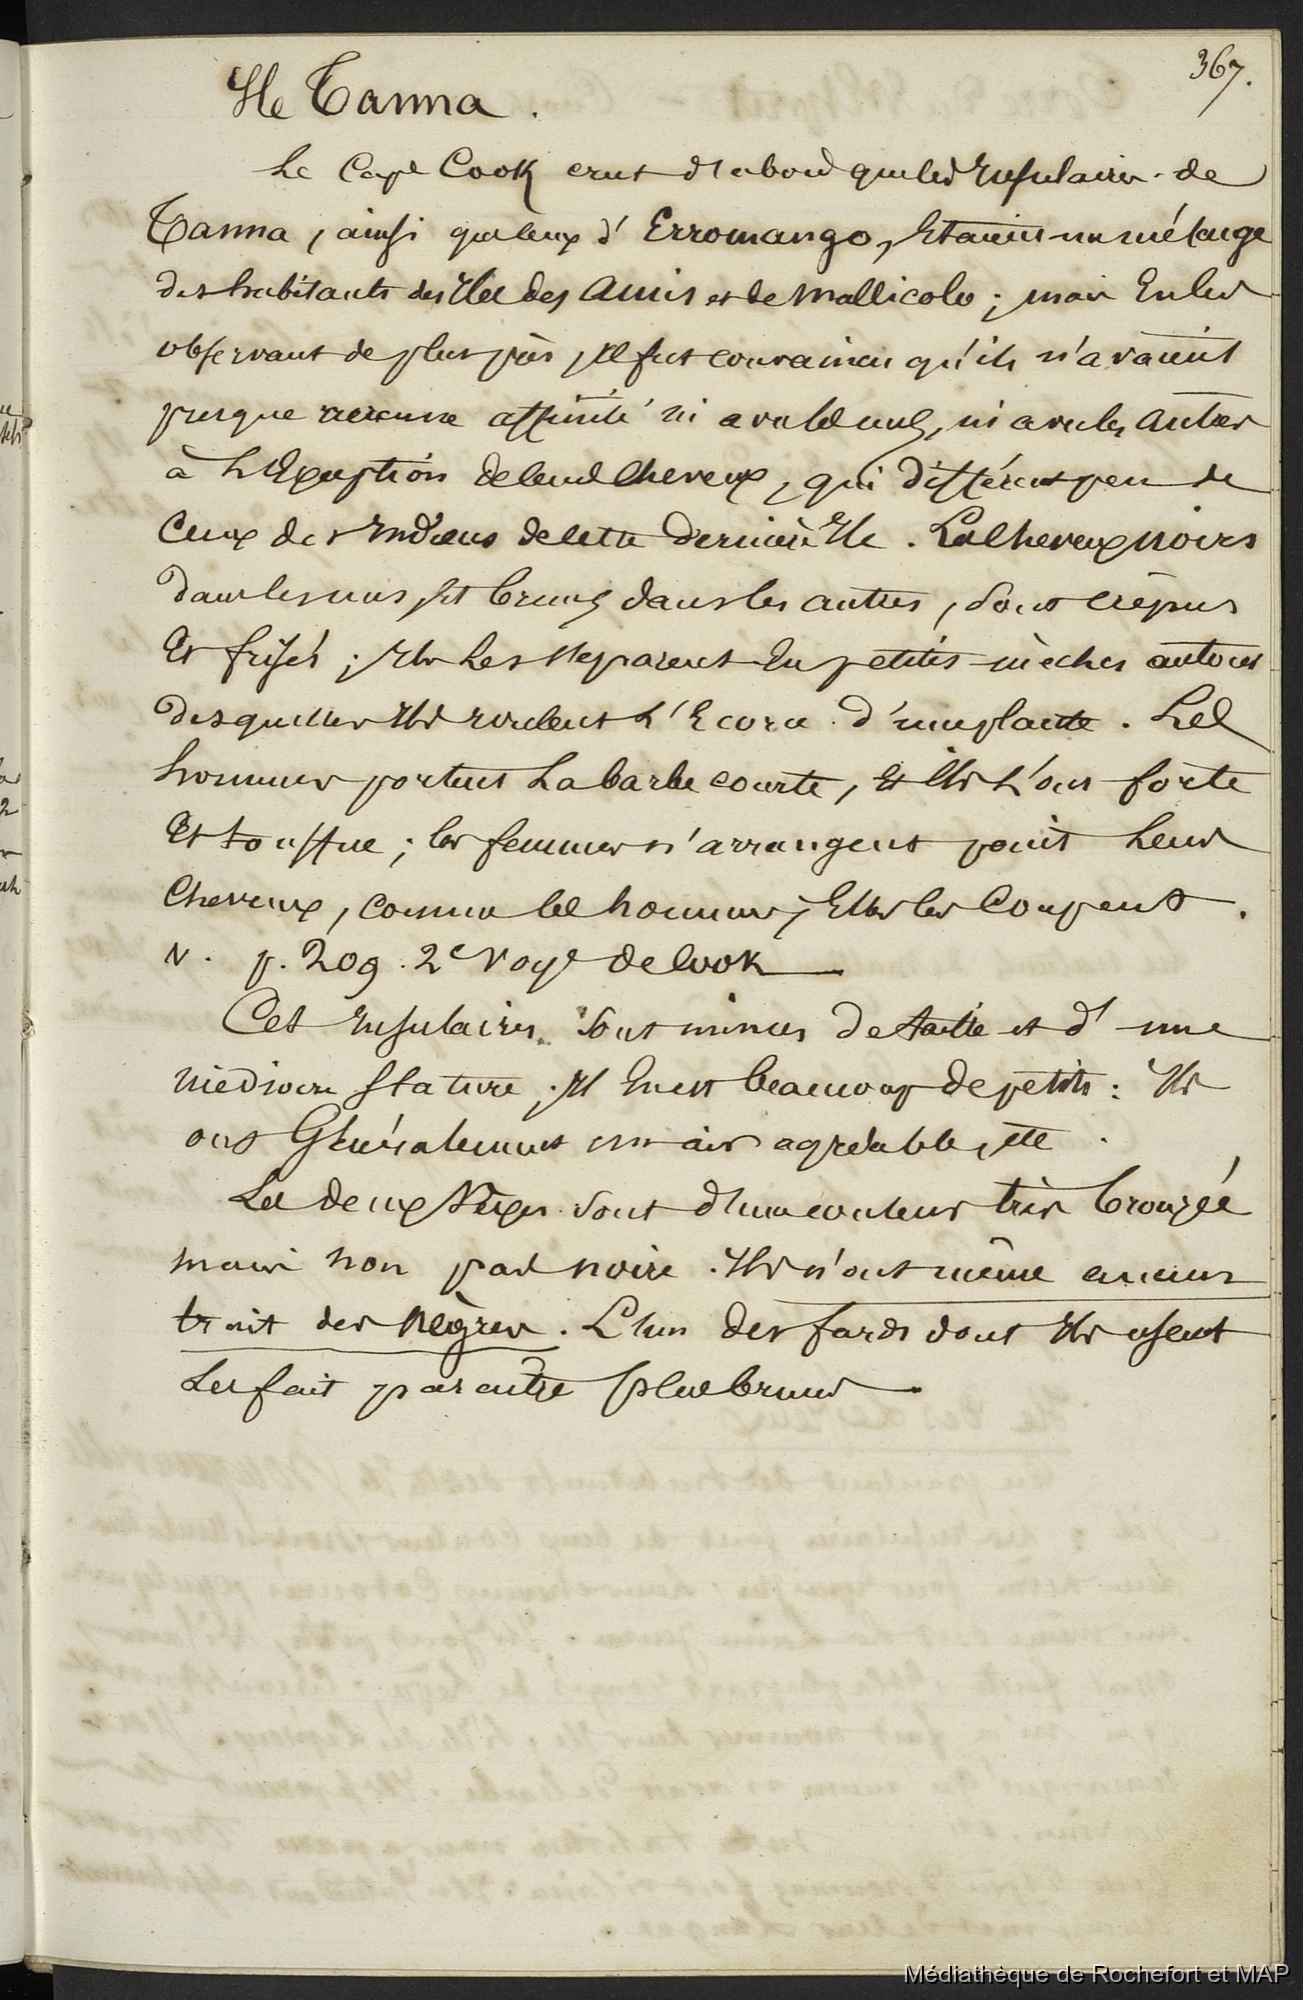 367.
Ile Tanna.
Le Cape Cook crut d'abord que les Insulaires de
Tanna, ainsi que ceux d'Erromango, Etaient un mélange
des habitants des Iles des Amis et de Mallicolo; mais En les
observant de plus près, Il fut convaincu qu'ils n'avaient
presque aucune affinité ni avec les uns, ni avec les autres
à L'Exception de leurs Cheveux, qui diffèrent peu de
Ceux des Indiens de cette dernière Ile. Les Cheveux noirs
dans les uns, Et bruns dans les autres, sont crépus
Et frisés; Ils Les séparent En petites mèches autour
desquelles Ils roulent L'Ecorce d'une plante. Les
hommes portent La barbe courte, Et Ils L'ont forte
Et touffue; les femmes n'arrangent point Leurs
Cheveux, comme les hommes; Elles les Coupent.
V. p. 209. 2e Voye de Cook
Ces Insulaires sont minces de taille et d'une
médiocre stature; Il En est beaucoup de petits: Ils
ont Généralement un air agréable, etc.
Les deux Sexes sont d'une couleur très bronzée
mais non pas noire. Ils n'ont même aucun
trait des Nègres. L'un des fards dont Ils usent
Les fait paraitre plus bruns.
Médiathèque de Rochefort et MAP